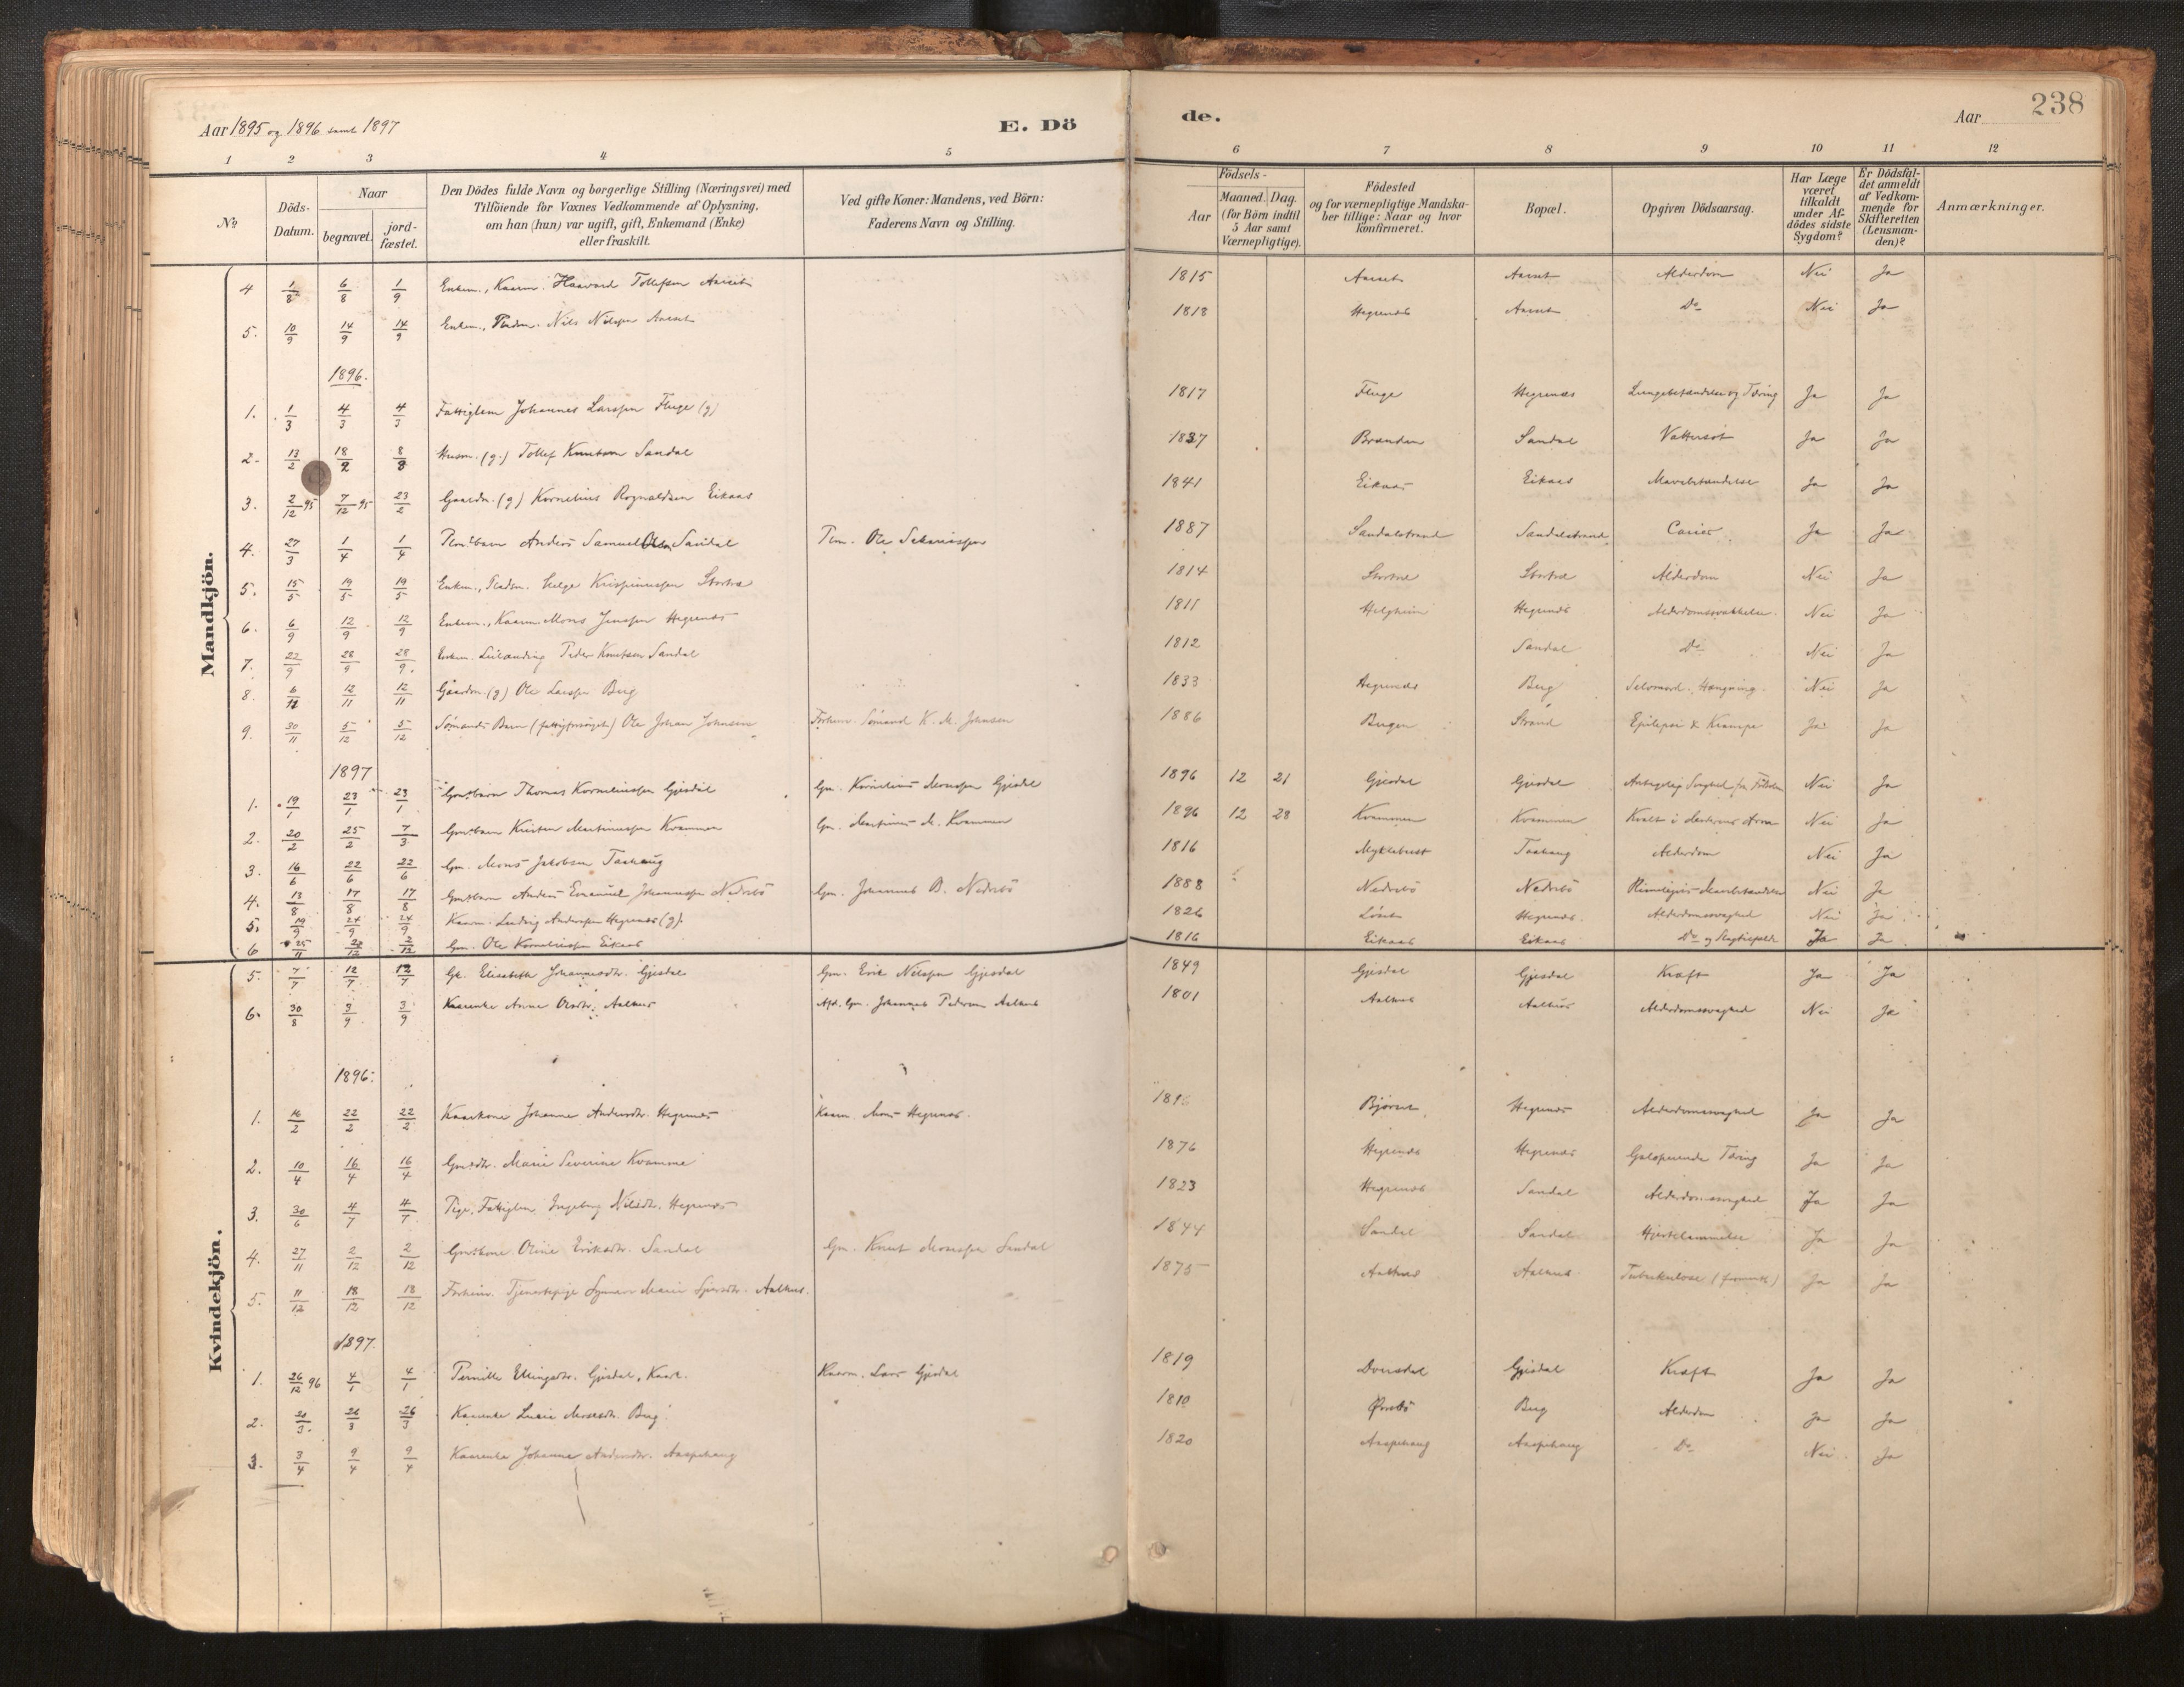 Aar 1895 og 1896 samt 1897
E. Dö
de.
Aar
238
1 2 3 4 5 6 7 8 9 10 11 12
No
Döds-Datum.
Naar
begravet.
jord-fæstet.
Den Dödes fulde Navn og borgerlige Stilling (Næringsvei) med
Tilföiende for Voxnes Vedkommende af Oplysning,
om han (hun) var ugift, gift, Enkemand (Enke)
eller fraskilt.
Ved gifte Koner: Mandens, ved Börn:
Faderens Navn og Stilling.
Födsels-
Aar
Maaned. Dag.
(for Börn indtil
5 Aar samt
Værnepligtige).
Födested
og for værnepligtige Mandska-
ber tillige: Naar og hvor
konfirmeret.
Bopæl.
Opgiven Dödsaarsag.
Har Læge
været
tilkaldt
under Af-
dödes sidste
Sygdom?
Er Dödsfal-
det anmeldt
af Vedkom-
mende for
Skifteretten
(Lensman-
den)?
Anmærkninger.
Mandkjön.
4 1/8 6/8 1/9 Enkem., Kaarm. Haavard Tollefsen Aaset 1815 Aaset Aaset Alderdom Nei Ja
5. 10/9 14/9 14/9 Enkem., Nils Nilssen Aaset 1818 Hegrenæs Aaset Do Nei Ja
1896.
1. 1/3 4/3 4/3 Fattiglem Johannes Larssen Fluge (g) 1817 Fluge Hegrenæs Lungebetændelse og Tæring Ja Ja
2. 13/2 18/2 8/3 Husm. (g.) Tollef Knutsen Sandal 1837 Branden Sandal Vattersot Ja Ja
3. 2/12 95 7/12 95 23/2 Gaardm. (g) Kornelius Rognaldsen Eikaas 1841 Eikaas Eikaas Mavebetændelse Ja Ja
4. 27/3 1/4 1/4 Anders Samuel Olsen Sandal Ole 1887 Sandalstrand Sandalstrand Caries Ja Ja
5. 15/5 19/5 19/5 Enkem., Helge Stortræ 1814 Stortræ Stortræ Alderdom Nei Ja
6. 6/9 12/9 12/9 Enkem., Kaarm. Mons Jenssen Hegrenæs 1811 Helgheim Hegrenæs Alderdomssvakkelse Nei Ja
7. 22/9 28/9 28/9. Enkem. Leilænding Peder Knutsen Sandal 1812 Sandal Do Nei Ja
8. 6/11 12/11 12/11 Gaardm. (g) Ole Larssen Berg 1833 Hegrenæs Berg Selvmord. Hængning. Nei Ja
9. 30/11 5/12 5/12 Sømands Barn (fattigforsørget) Ole Johan Johnsen Forhenv. Sømand K. M. Johnsen 1886 Bergen Strand Epilepsi & Krampe Ja Ja
1897
1. 19/1 23/1 23/1 Gmdsbarn Thomas Korneliussen Gjesdal Gm. Kornelius Monssen Gjesdal 1896 12 21 Gjesdal Gjesdal Antagelig Svaghed fra Fødselen Nei Ja
2. 20/2 25/2 7/3 Gmdsbarn Kristen Martinussen Kvammen Gm. Martinus M. Kvammen 1896 12 28 Kvammen Kvammen Kvalt i Moderens Arm Nei Ja
3. 16/6 22/6 22/6 Gm. Mons Jakobsen Taahaug 1816 Myklebust Taahaug Alderdom Nei Ja
4. 13/8 17/8 17/8 Gmdsbarn Anders Emanuel Johannessen Nedrebö Gm. Johannes B. Nedrebö 1888 Nedrebö Nedrebö Rimeligvis Mavebetændelse Nei Ja
5. 19/9 24/9 24/9 Kaarm. Ludvig Anderssen Hegrenæs (g). 1826 Løset Hegrenæs. Alderdomssvaghed Nei Ja
6 25/11 2/12 2/12 Gm. Ole Korneliussen Eikaas 1816 Eikaas Eikaas Do og Slagtilfælde Ja Ja
Kvindekjön.
5. 7/7 12/7 12/7 Gk. Elisabeth Johannesdtr. Gjesdal Gm. Erik Nilssen Gjesdal 1849 Gjesdal Gjesdal Kræft Ja Ja
6. 30/8 3/9 3/9 Kaarenke Anna Olsdtr. Aalhus Afd. Gm. Johannes Pedersen Aalhus 1801 Aalhus Aalhus Alderdomssvaghed Nei Ja
1896.
1. 16/2 22/2 22/2 Kaarkone Johanne Andersdtr. Hegrenæs Kaarm. Mons Hegrenæs. Bjørset Hegrenæs Alderdomssvaghed Ja Ja
2. 10/4 16/4 16/4 Gmsdtr. Marie Severine Kvamme 1876 Hegrenæs Hegrenæs Galoperende Tæring Ja Ja
3. 30/6 4/7 4/7 Pige, Fattiglem Ingeborg Nilsdtr. Hegrenæs 1823 Hegrenæs Sandal Alderdomssvaghed Ja Ja
4. 27/11 2/12 2/12 Gmdskone Oline Eriksdtr. Sandal Gm. Knut Monssen Sandal 1844 Sandal Sandal Hjertelammelse Ja Ja
5. 11/12 18/12 18/12 Forhenv. Tjenestepige Synneve Marie Sjursdtr. Aalhus. 1875 Aalhus Aalhus Tuberkulose Ja Ja
1897.
1. 26/12 96 4/1 4/1 Pernille Ellingsdtr. Gjesdal, Kaark. Kaarm. Lars Gjesdal 1819 Dvergsdal Gjesdal Kræft Ja Ja
2. 20/3. 26/3 26/3 Kaarenke Lucie Monsdtr. Berg 1810 Ørebö Berg Alderdom Ja Ja
3. 3/4 9/4 9/4 Kaarenke Johanne Andersdtr. Aaspehaug 1820 Aaspehaug Aaspehaug Do Nei Ja